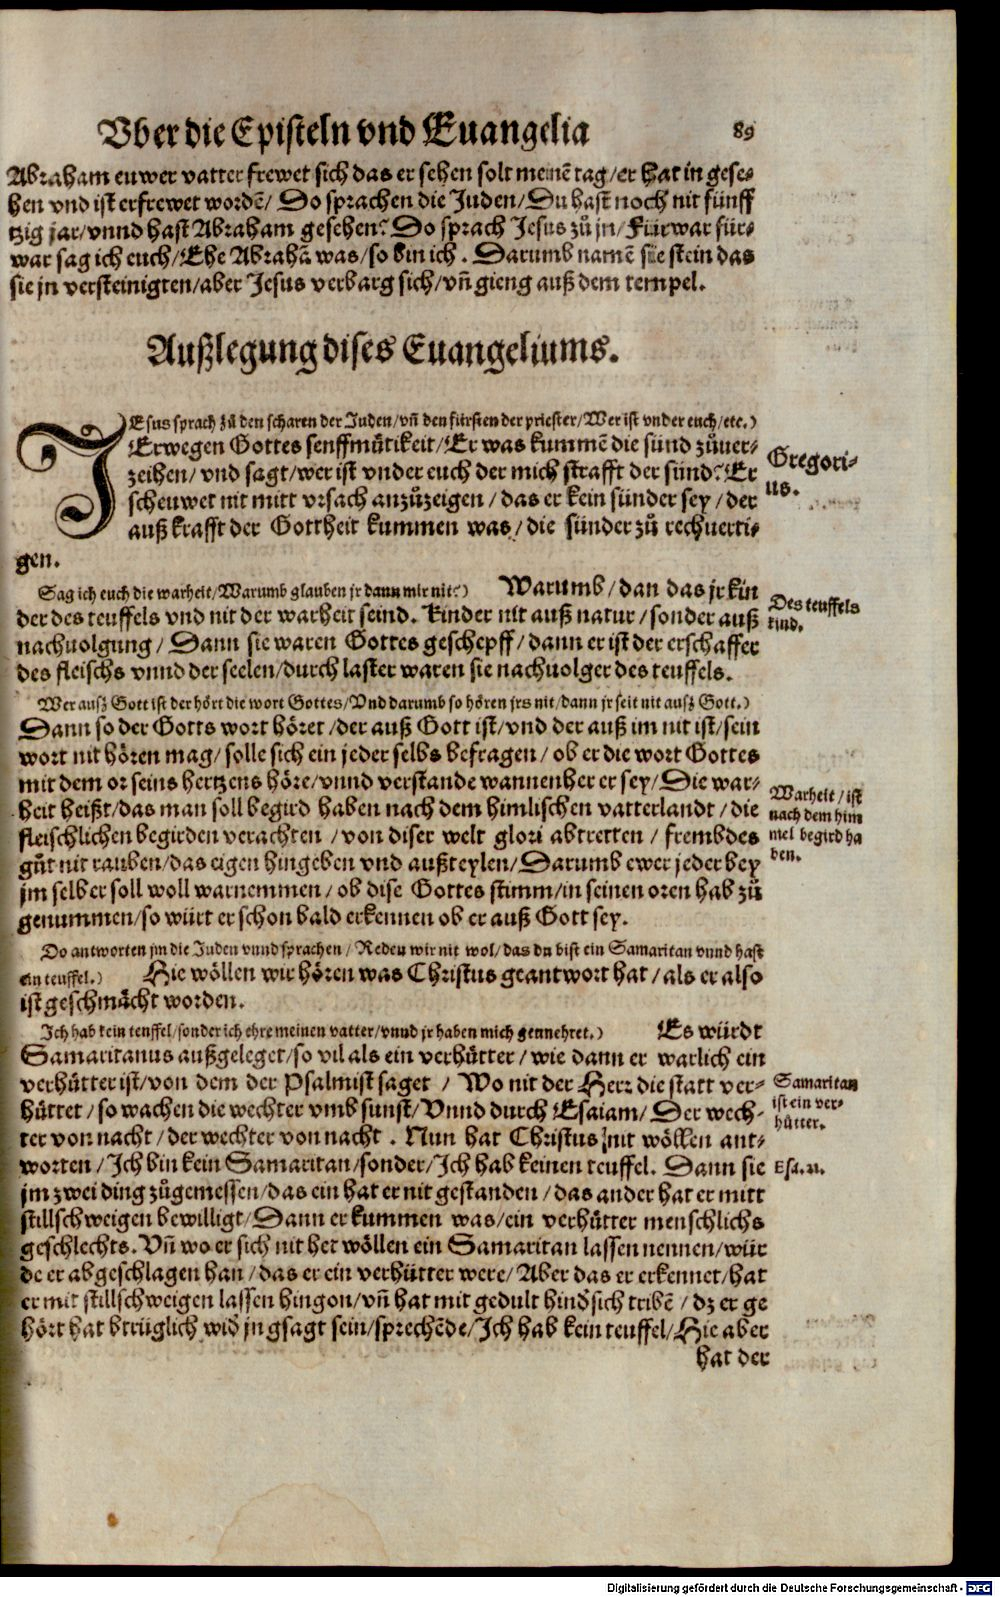 Vber die Episteln vnd Euangelia 89
Abraham euwer vatter frewet sich das er sehen solt meinē tag/er hat in gese-
hen vnd ist erfrewet wordē/ Do sprachen die Juden/Du hast noch nit fünff
tzig jar/vnnd hast Abraham gesehen? Do sprach Jesus zů jn/ Fürwar für-
war sag ich euch/Ehe Abrahā was/so bin ich. Darumb namē sie stein das
sie jn versteinigten/aber Jesus verbarg sich/vñ gieng auß dem tempel.
Außlegung dises Euangeliums.
JEsus sprach zů den scharen der Juden/vñ den fürsten der priester/Wer ist vnder euch/etc.)
Erwegen Gottes senffmůtikeit/Er was kummē die sünd zůuer-
zeihen/vnd sagt/wer ist vnder euch der mich strafft der sünd? Er
scheuwet nit mitt vrsach anzůzeigen/das er kein sünder sey/der
auß krafft der Gottheit kummen was/die sünder zů rechuerti-
gen.
Gregori-
us.
Sag ich euch die warheit/Warumb glauben jr dann mir nit?) Warumb/dan das jr kin
der des teuffels vnd nit der warheit seind. Kinder nit auß natur/sonder auß
nachuolgung/Dann sie waren Gottes geschepff/dann er ist der erschaffer
des fleischs vnnd der seelen/durch laster waren sie nachuolger des teuffels.
Des teuffels
kind.
Wer ausz Gott ist der hört die wort Gottes/Vnd darumb so hören jrs nit/dann jr seit nit ausz Gott.)
Dann so der Gotts wort höret/der auß Gott ist/vnd der auß im nit ist/sein
wort nit hören mag/solle sich ein jeder selbs befragen/ob er die wort Gottes
mit dem or seins hertzens höre/vnnd verstande wannenher er sey/Die war-
heit heißt/das man soll begird haben nach dem himlischen vatterlandt/die
fleischlichen begirden verachten/von diser welt glori abtretten/frembdes
gůt nit rauben/das eigen hingeben vnd außteylen/Darumb ewer jeder bey
jm selber soll woll warnemmen/ob dise Gottes stimm/in seinen oren hab zů
genummen/so würt er schon bald erkennen ob er auß Gott sey.
Warheit/ist
nach dem him
mel begird ha
ben.
Do antworten jm die Juden vnnd sprachen/Reden wir nit wol/das du bist ein Samaritan vnnd hast
ein teuffel.) Hie wöllen wir hören was Christus geantwort hat/als er also
ist geschmächt worden.
Ich hab kein teuffel/sonder ich ehre meinen vatter/vnnd jr haben mich geunehret.) Es würdt
Samaritanus außgeleget/so vil als ein verhütter/wie dann er warlich ein
verhütter ist/von dem der Psalmist saget/Wo nit der Herr die statt ver-
hüttet/so wachen die wechter vmb sunst/Vnnd durch Esaiam/Der wech-
ter von nacht/der wechter von nacht. Nun hat Christus nit wöllen ant-
worten/Ich bin kein Samaritan/sonder/Ich hab keinen teuffel. Dann sie
jm zwei ding zůgemessen/das ein hat er nit gestanden/das ander hat er mitt
stillschweigen bewilligt/Dann er kummen was/ein verhütter menschlichs
geschlechts. Vñ wo er sich nit het wöllen ein Samaritan lassen nennen/wür
de er abgeschlagen han/das er ein verhütter were/Aber das er erkennet/hat
er mit stillschweigen lassen hingon/vñ hat mit gedult hindsich tribē/dz er ge
hört hat btrüglich wid jn gsagt sein/sprechēde/Ich hab kein teuffel/Hie aber
hat der
Samaritan
ist ein ver-
hütter.
Esa. 21.
Digitalisierung gefördert durch die Deutsche Forschungsgemeinschaft - DFG